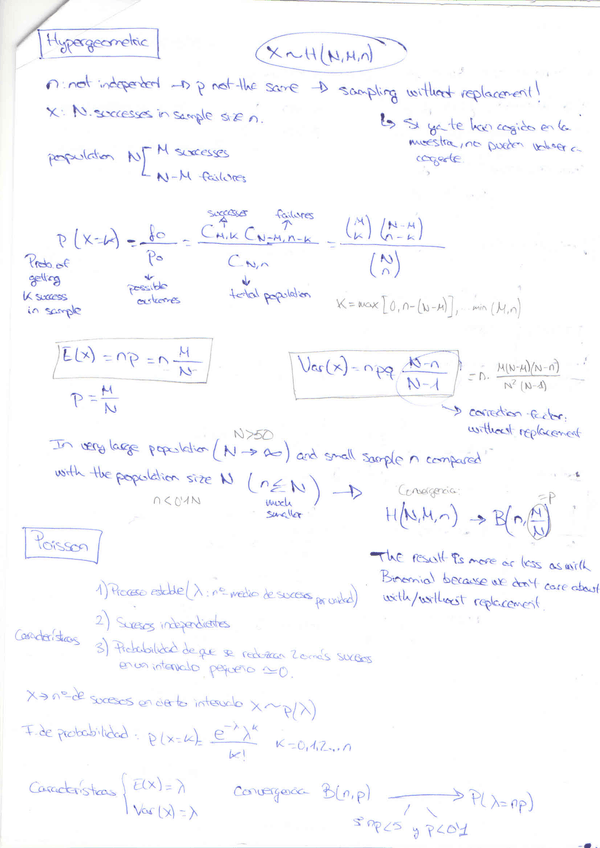 Hypergeometric
X ~ H(N,M,n)
n: not independent → p not the same → sampling without replacement!
X: N. successes in sample size n.
↳ Si ya te han cogido en la muestra, no pueden volver a cogerte.
population N [ M successes
N-M failures
successes failures
P(X=k) = fo/po = C_{M,k} C_{N-M,n-k} / C_{N,n} = (M k)(N-M n-k) / (N n)
Prob of getting K success in sample
possible outcomes
total population
K = max[0, n-(N-M)], min(M,n)
E(x) = np = n M/N
Var(x) = npq (N-n)/(N-1) = n · M(N-M)(N-n) / N²(N-1)
p = M/N
→ correction factor, without replacement
N>50
In very large population (N → ∞) and small sample n compared
with the population size N (n ≤ N) →
n<0'1N
much smaller
Convergencia:
H(N,M,n) → B(n, M/N) =p
The result is more or less as with
Binomial because we don't care about
with/without replacement.
Poisson
Características
1) Proceso estable (λ: nº medio de sucesos por unidad)
2) Sucesos independientes
3) Probabilidad de que se produzcan 2 o más sucesos
en un intervalo pequeño ≃ 0.
X → nº de sucesos en cierto intervalo X ~ P(λ)
F. de probabilidad: P(x=k) = e^{-λ} λ^k / k! K=0,1,2...n
Características { E(X)=λ
Var(X)=λ
Convergencia B(n,p) → P(λ=np)
si np<5 y p<0'1